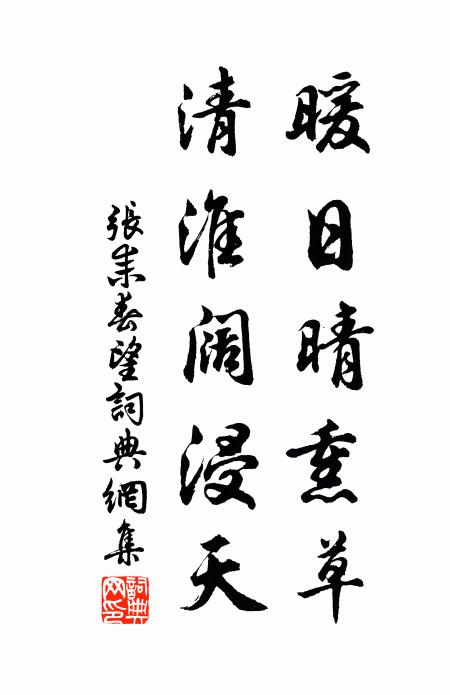 暖日晴熏草
清淮阔浸天
張耒春望詞典網集
詞典网印